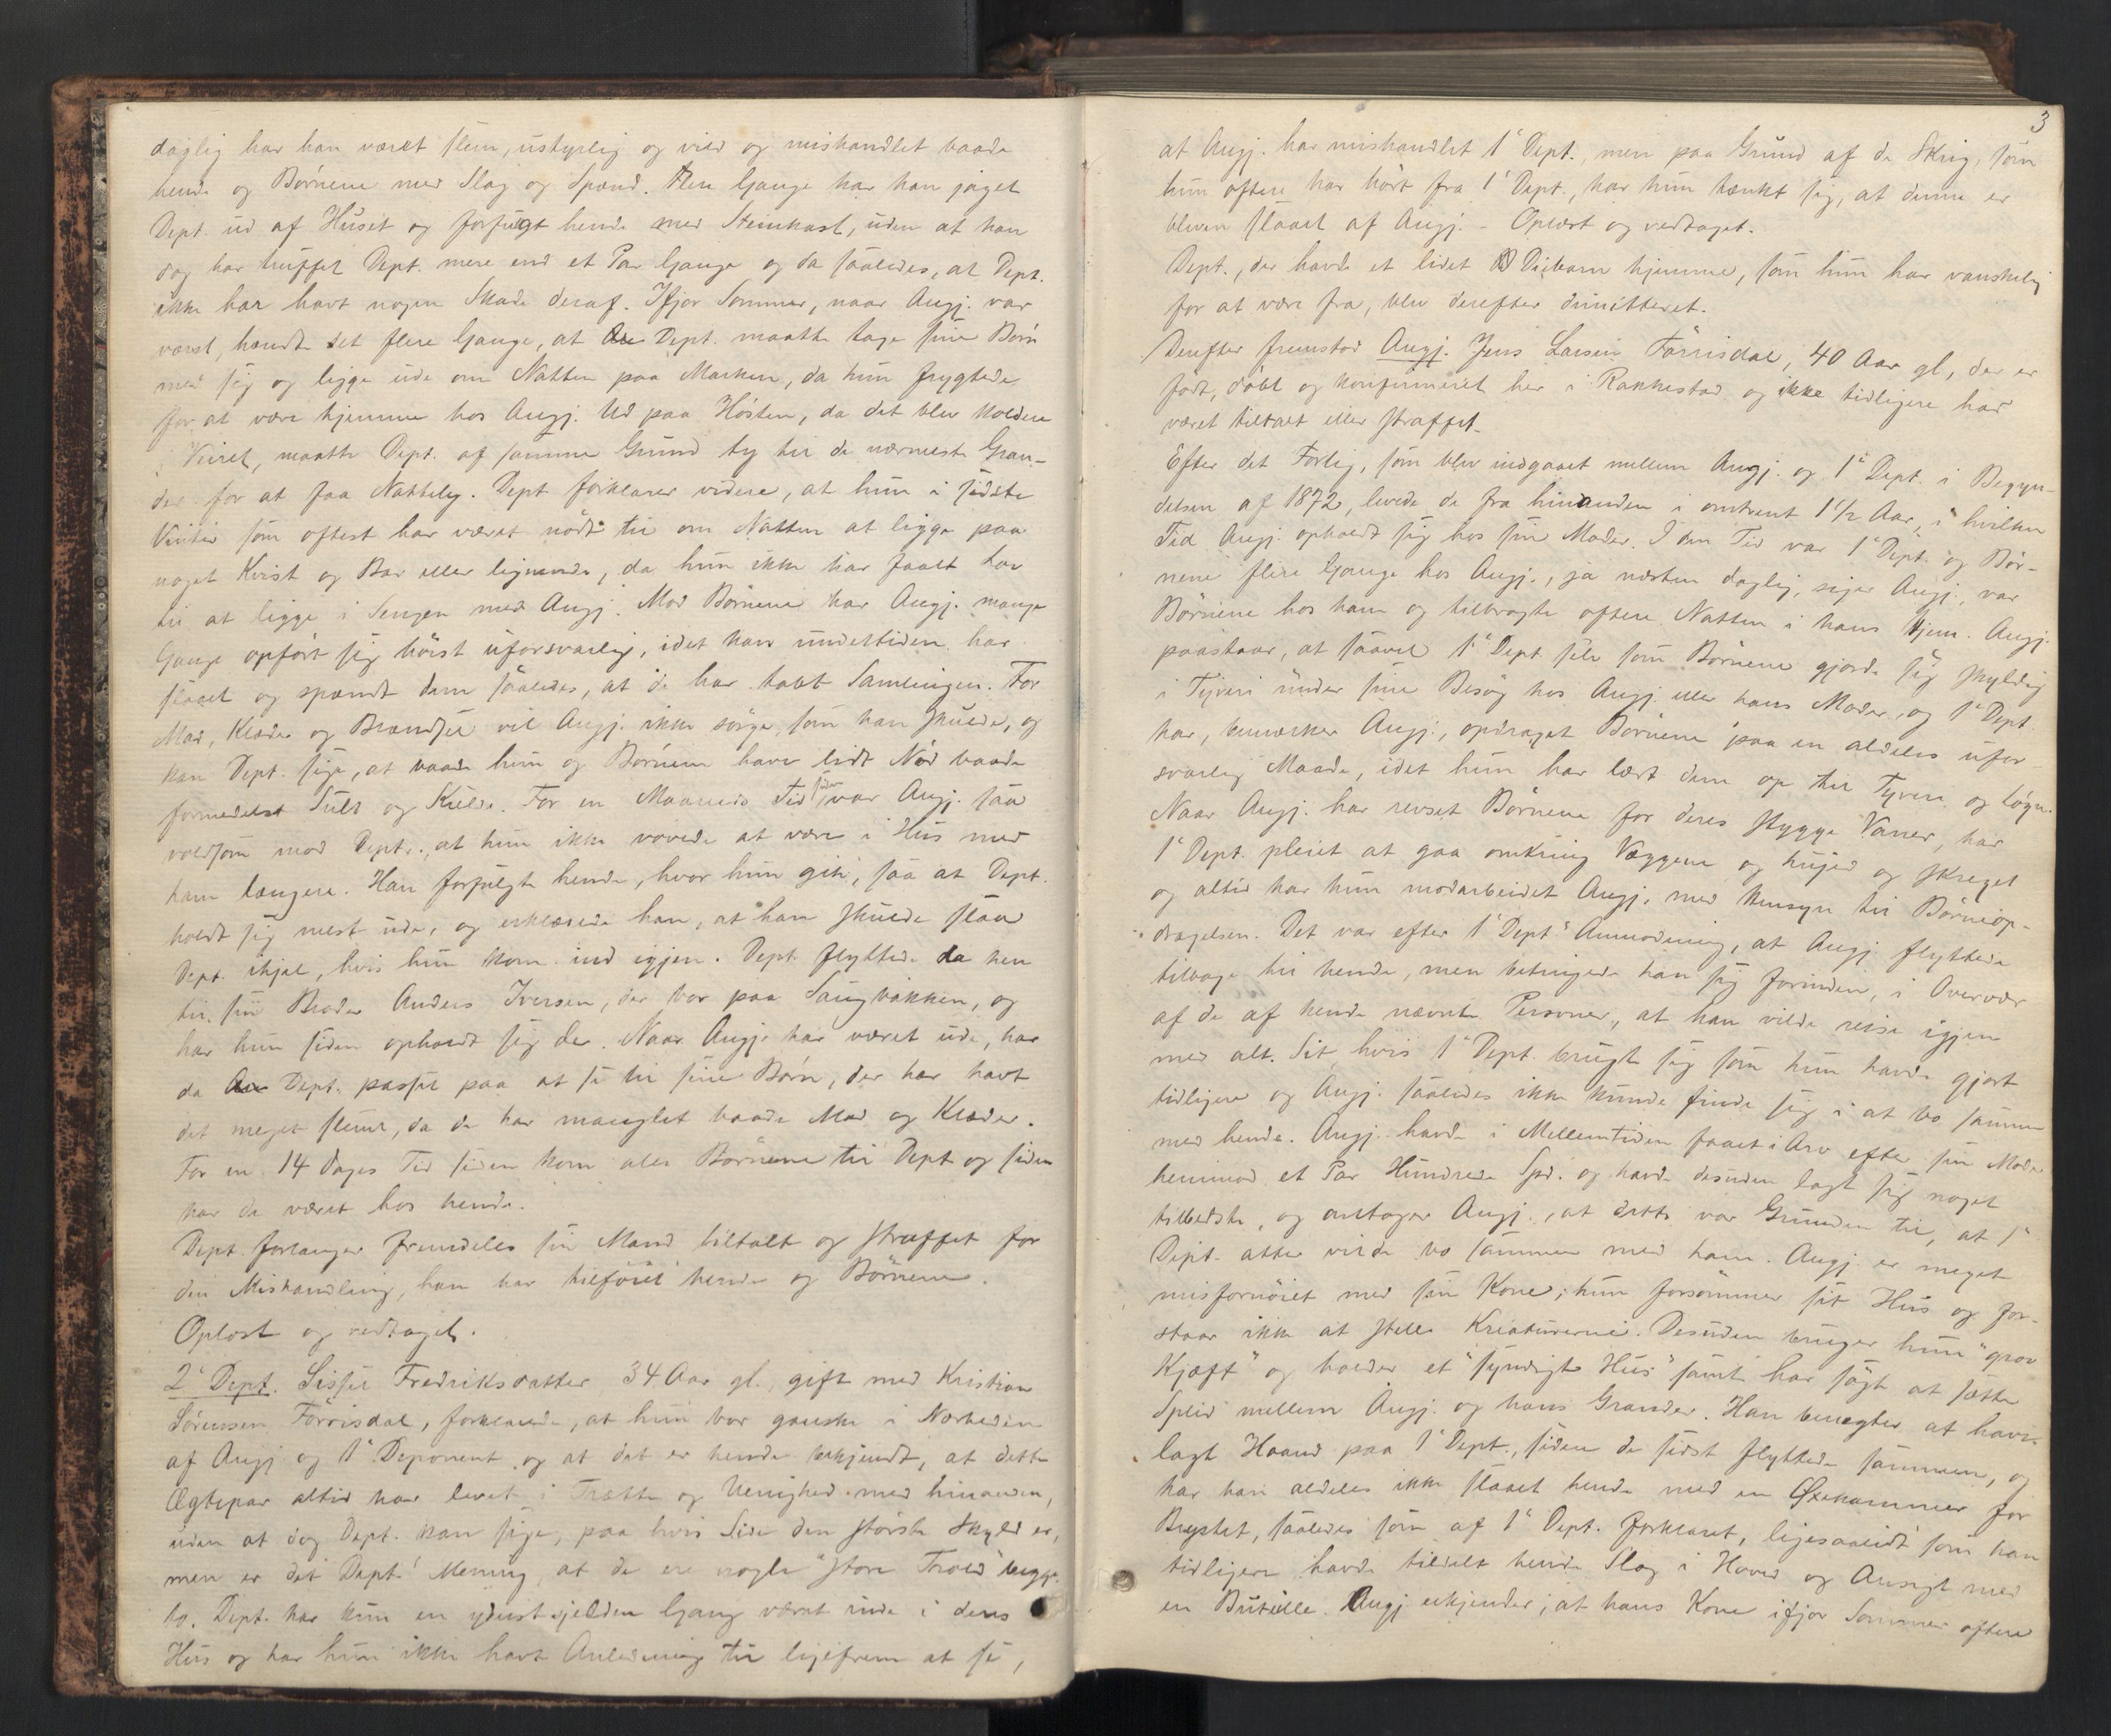 daglig har han været slem, ustyrlig og vild og mishandlet baade
hende og Børnene med Slag og Spænd. Flere Gange har han jaget
Dept. ud af Huset og forfulgt hende med Stenkast, uden at han
dog har truffet Dept. mere end et Par Gange og da saaledes, at Dept.
ikke har havt nogen Skade deraf. Ifjor Sommer, naar Angj. var
værst, hændte det flere Gange, at Dept. maatte tage sine Børn
med sig og ligge ude om Natten paa Marken, da hun frygtede
for at være hjemme hos Angj. Ud paa Høsten, da det blev koldere
i Veiret, maatte Dept. af samme Grund ty til de nærmeste Gran-
der for at faa Natteley. Dept forklarer videre, at hun i sidste
Vinter som oftest har været nødt til om Natten at ligge paa
noget Kvist og Bar eller lignende, da hun ikke har faaet lov
til at ligge i Sengen med Angj. Mod Børnene har Angj. mange
Gange opført sig høist uforsvarlig, idet han undertiden har
slaaet og spændt dem saaledes, at de har tabt Samlingen. For
Mad, Klæder og Brændsel vil Angj. ikke sørge, som han skulde, og
kan Dept. sige, at baade hun og Børnene have lidt Nød baade
formedelst Sult og Kulde. For en Maaneds Tid siden var Angj. saa
voldsom mod Dept., at hun ikke vovede at være i Hus med
ham længere. Han forfulgte hende, hvor hun gik, saa at Dept.
holdt sig mest ude, og erklærede han, at han skulde slaa
Dept. ihjel, hvis hun kom ind igjen. Dept. flyttede da hen
til sin Broder Anders Iversen, der bor paa Saugbakken, og
har hun siden opholdt sig der. Naar Angj. har været ude, har
da Dept. passet paa at se til sine Børn, der har havt
det meget slemt, da de har manglet baade Mad og Klæder.
For en 14 Dages Tid siden kom alle Børnene til Dept og siden
har de været hos hende.
Dept. forlanger fremdeles sin Mand tiltalt og straffet for
den Mishandling, han har tilføiet hende og Børnene.
Oplæst og vedtaget.
2de Dept. Sissel Fredriksdatter 34 Aar gl., gift med Kristian
Sørensen Førrisdal, forklarede, at hun bor ganske i Nærheden
af Angj og 1ste Deponent og at det er hende bekjendt, at dette
Ægtepar altid har levet i Trætte og Uenighed med hinanden,
uden at dog Dept. kan sige, paa hvis Side den største Skyld er,
men er det Dept.s Mening, at de ere nogle "store Trold" begge
to. Dept. har kun en yderst sjelden Gang været inde i deres
Hus og har hun ikke havt Anledning til ligefrem at se,
3
at Angj. har mishandlet 1ste Dept., men paa Grund af de Skrig, som
hun oftere har hørt fra 1ste Dept., har hun tænkt sig, at denne er
bleven slaaet af Angj. - Oplæst og vedtaget.
Dept., der havde et lidet Diebarn hjemme, som hun har vanskelig
for at være fra, blev derefter dimitteret.
Derefter fremstod Angj. Jens Larsen Førrisdal, 40 Aar gl, der er
født, døbt og konfirmeret her i Rakkestad og ikke tidligere har
været tiltalt eller straffet.
Efter det Forlig, som blev indgaaet mellem Angj. og 1ste Dept. i Begyn-
delsen af 1872, levede de fra hinanden i omtrent 1 1/2 Aar, i hvilken
Tid Angj. opholdt sig hos sin Moder. I den Tid var 1ste Dept. og Bør-
nene flere Gange hos Angj., ja næsten daglig, siger Angj., var
Børnene hos ham og tilbragte oftere Natten i hans Hjem. Angj.
paastaar, at saavel 1ste Dept. selv som Børnene gjorde sig skyldig
i Tyveri under sine Besøg hos Angj. eller hans Moder, og 1ste Dept.
har, bemærker Angj., opdraget Børnene paa en aldeles ufor-
svarlig Maade, idet hun har lært dem op til Tyveri og Løgn.
Naar Angj. har revset Børnene for deres stygge Vaner, har
1ste Dept. pleiet at gaa omkring Væggene og hujed og skreget
og altid har hun modarbeidet Angj. med Hensyn til Børneop-
dragelsen. Det var efter 1ste Depts Anmodning, at Angj. flyttede
tilbage til hende, men betingede han sig forinden, i Overvær
af de af hende nævnte Personer, at han vilde reise igjen
med alt Sit, hvis 1ste Dept. brugte sig som hun havde gjort
tidligere og Angj. saaledes ikke kunde finde sig i at bo sammen
med hende. Angj. havde i Mellemtiden faaet i Arv efter sin Moder
henimod et Par Hundrede Spd. og havde desuden lagt sig noget
tilbedste, og antager Angj., at dette var Grunden til, at 1ste
Dept. atter vilde bo sammen med ham. Angj. er meget
misfornøiet med sin Kone; hun forsømmer sit Hus og for-
staar ikke at stelle Kreaturerne. Desuden bruger hun "grov
Kjæft" og holder et "syndigt Hus" samt har søgt at sætte
Splid mellem Angj. og hans Grander. Han benægter at have
lagt Haand paa 1ste Dept., siden de sidst flyttede sammen, og
har han aldeles ikke slaaet hende med en Øxehammer for
Brystet, saaledes som af 1ste Dept. forklaret, ligesaalidt som han
tidligere havde tildelt hende Slag i Hoved og Ansigt med
en Butelle. Angj. erkjender, at hans Kone ifjor Sommer oftere